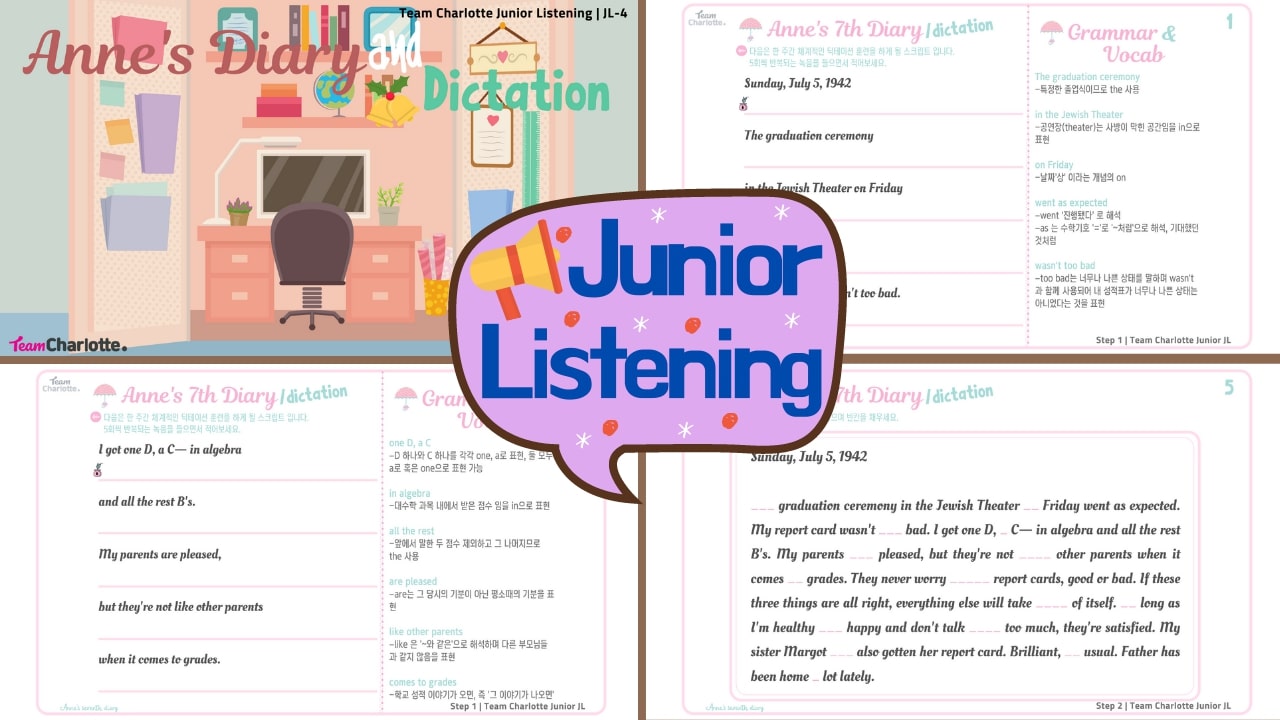 Team Charlotte Junior Listening | JL-4
Anne's Diary and
Dictation
TeamCharlotte.
Junior
Listening
Team
Charlotte.
Anne's 7th Diary/dictation
다음은 한 주간 체계적인 딕테이션 훈련을 하게 될 스크립트 입니다.
5회씩 반복되는 녹음을 들으면서 적어보세요.
Sunday, July 5, 1942
The graduation ceremony
in the Jewish Theater on Friday
n't too bad.
1
Grammar &
Vocab
The graduation ceremony
-특정한 졸업식이므로 the 사용
in the Jewish Theater
-공연장(theater)는 사방이 막힌 공간임을 in으로
표현
on Friday
-날짜'상' 이라는 개념의 on
went as expected
-went '진행됐다' 로 해석
-as 는 수학기호 '='로 '~처럼'으로 해석, 기대했던
것처럼
wasn't too bad
-too bad는 너무나 나쁜 상태를 말하며 wasn't
과 함께 사용되어 내 성적표가 너무나 나쁜 상태는
아니었다는 것을 표현
Step 1 | Team Charlotte Junior JL
Team
Charlotte.
Anne's 7th Diary/dictation
다음은 한 주간 체계적인 딕테이션 훈련을 하게 될 스크립트 입니다.
5회씩 반복되는 녹음을 들으면서 적어보세요.
I got one D, a C— in algebra
and all the rest B's.
My parents are pleased,
but they're not like other parents
when it comes to grades.
Gram
Vo
one D, a C
-D 하나와 C 하나를 각각 one, a로 표현, 둘 모두
a로 혹은 one으로 표현 가능
in algebra
-대수학 과목 내에서 받은 점수 임을 in으로 표현
all the rest
-앞에서 말한 두 점수 제외하고 그 나머지므로
the 사용
are pleased
-are는 그 당시의 기분이 아닌 평소때의 기분을 표
현
like other parents
-like 은 '~와 같은'으로 해석하며 다른 부모님들
과 같지 않음을 표현
comes to grades
-학교 성적 이야기가 오면, 즉 '그 이야기가 나오면'
Step 1 | Team Charlotte Junior JL
7th Diary/dictation
빈칸을 채우세요.
5
Sunday, July 5, 1942
___ graduation ceremony in the Jewish Theater __ Friday went as expected.
My report card wasn't ___ bad. I got one D, _ C— in algebra and all the rest
B's. My parents ___ pleased, but they're not ____ other parents when it
comes __ grades. They never worry _____ report cards, good or bad. If these
three things are all right, everything else will take ____ of itself. __ long as
I'm healthy ___ happy and don't talk ____ too much, they're satisfied. My
sister Margot ___ also gotten her report card. Brilliant, __ usual. Father has
been home _ lot lately.
Step 2 | Team Charlotte Junior JL